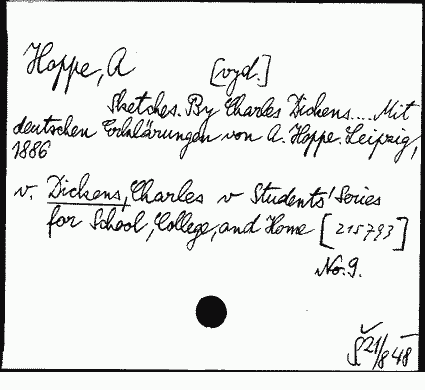 Hoppe, A [vyd.]
Sketches. By Charles Dickens.... Mit
deutschen Erklärungen von A. Hoppe. Leipzig,
1886
v. Dickens, Charles v Students' Series
for School, College, and Home [215793]
No. 9.
21/8 48